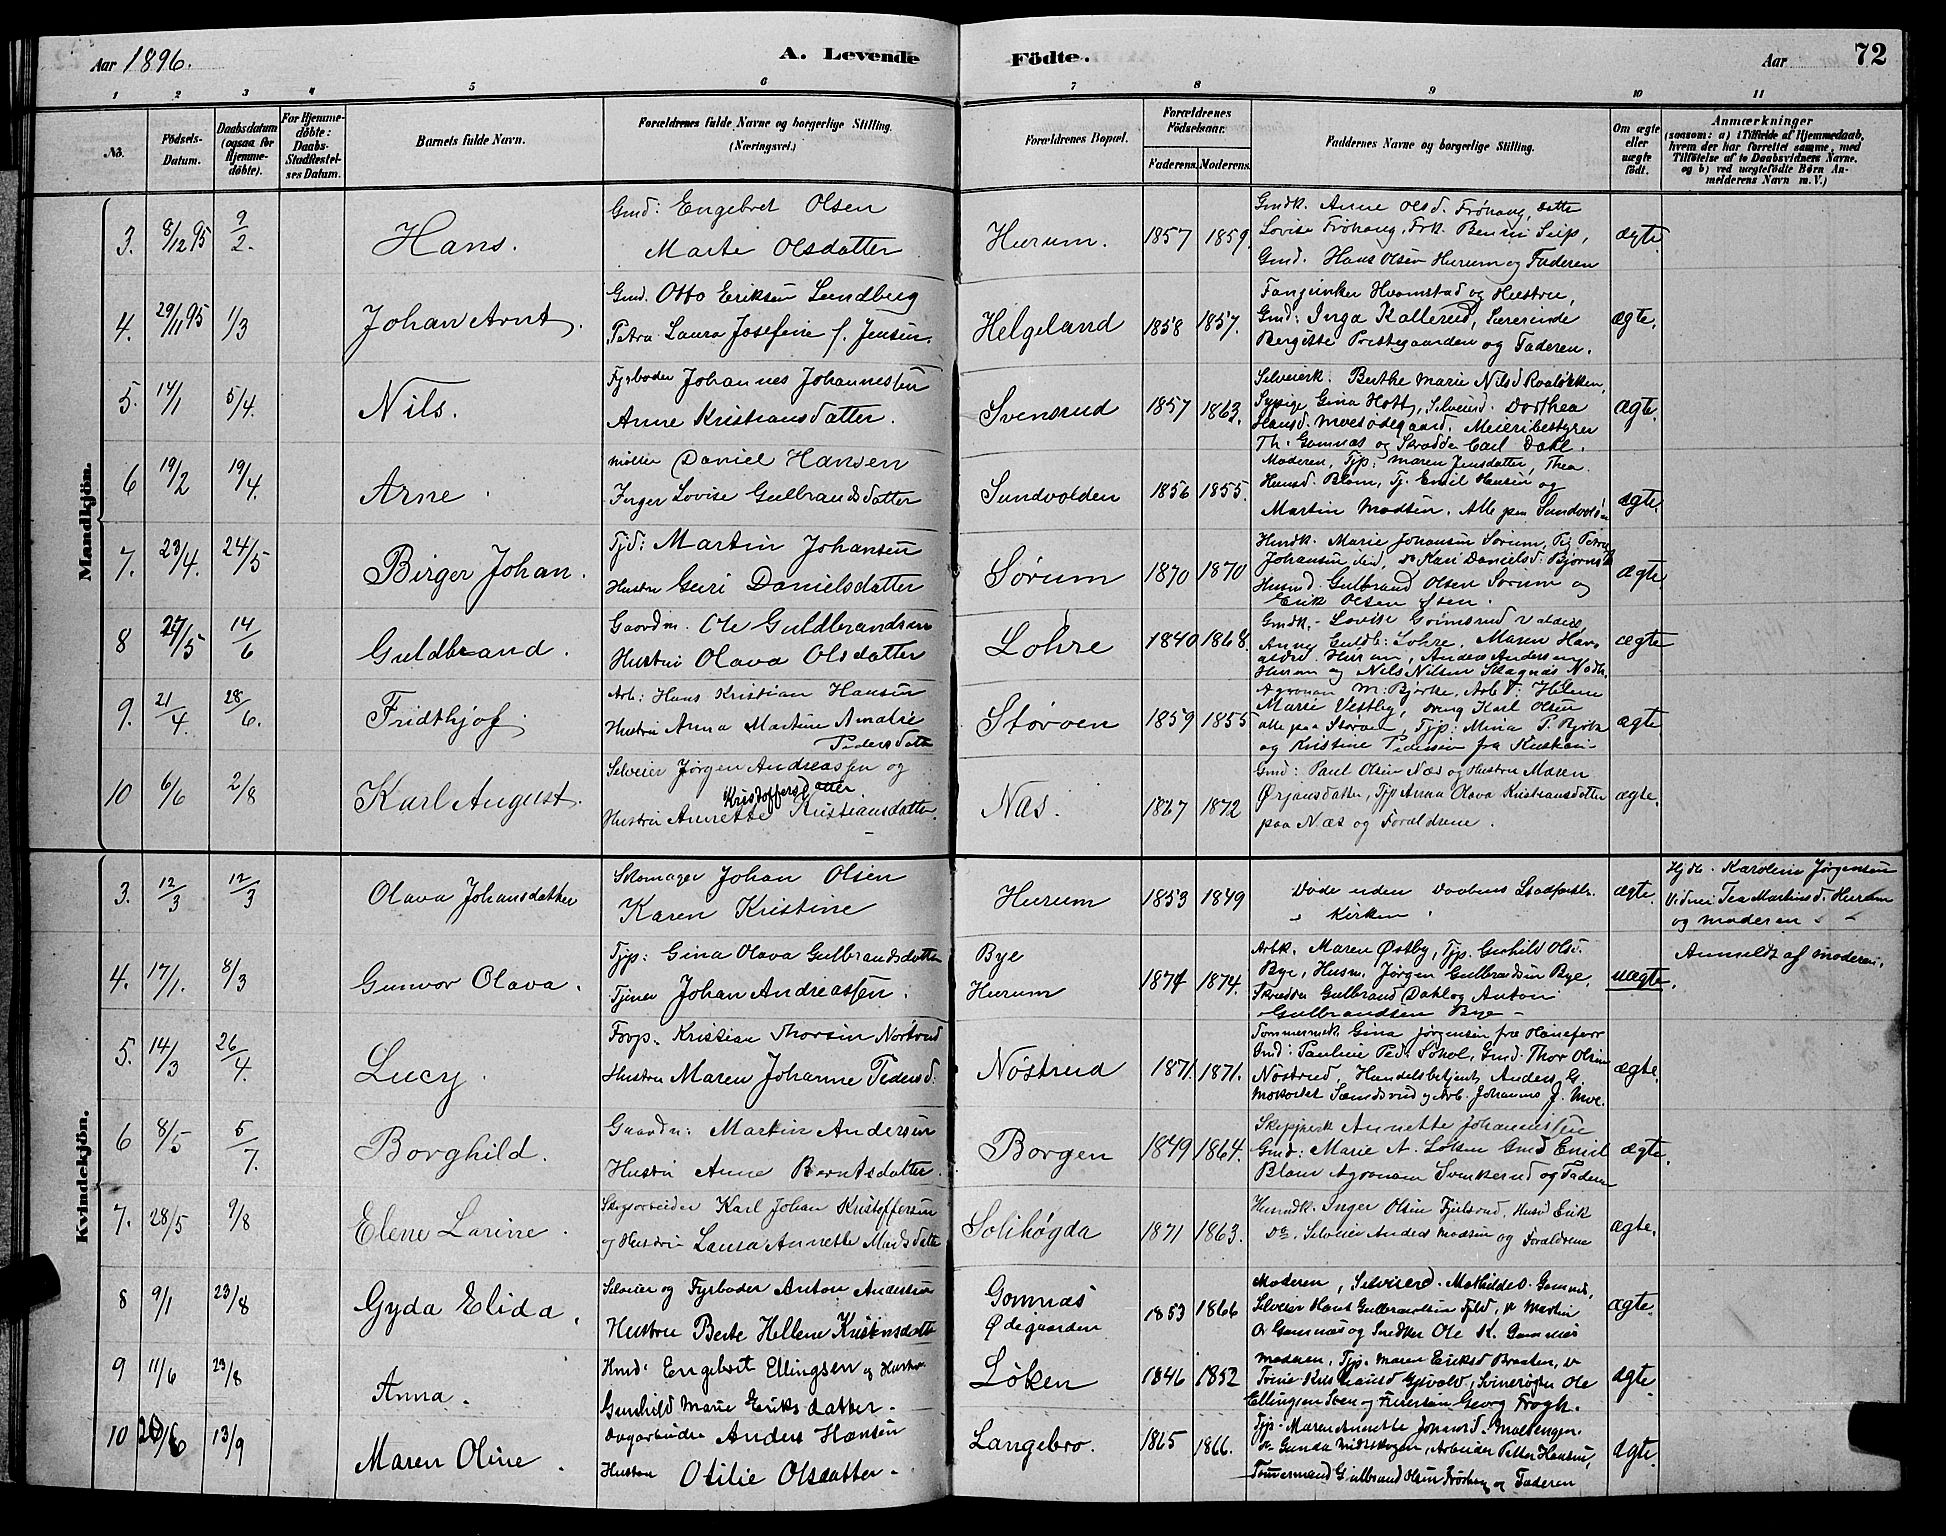 Aar 1896.
A. Levende
Födte.
Aar
72
1 2 3 4 5 6 7 8 9 10 11
No.
Födsels-Datum.
Daabsdatum (ogsaa for Hjemmedöbte).
For Hjemmedöbte: Daabs-Stadfæstelses Datum.
Barnets fulde Navn.
Forældrenes fulde Navne og borgerlige Stilling. (Næringsvei.)
Forældrenes Bopæl.
Forældrenes Födselsaar.
Faderens. Moderens.
Faddernes Navne og borgerlige Stilling.
Om ægte eller uægte født.
Anmærkninger
(saasom: a) i Tilfælde af Hjemmedaab, hvem der har forrettet samme, med Tilföielse af to Daabsvidners Navne, og b) ved uægtefödte Børn Anmelderens Navn m. V.)
Mandkjön.
3. 8/12 95 9/2. Hans.
Gmd: Engebret Olsen
Marte Olsdatter
Hurum. 1857 1859.
Gmdk. Anne Olsd. Frøhaug, Datte
Lovise Frøhaug, Frk. Benni Seip,
Gmd. Hans Olsen Hurum og Faderen
ægte
4. 29/11 95 1/3 Johan Arnt.
Gmd. Otto Eriksen Lundberg
Petra Laura Josefine f. Jensen.
Helgeland 1858 1857.
Fanejunker Hvamstad og Hustru,
Gmd: Inga Kallerud, Lærerinde
Bergitte Prestegaarden og Faderen.
ægte.
5. 14/1 5/4. Nils.
Fyrbøder Johannes Johannessen
Anne Kristiansdatter.
Svensrud 1857 1863.
Selveierk. Berthe Marie Nilsd Roaløkken,
Sypige Gina Hott, Selveierd. Dorthea
Hansd. Moesødegaard. Meieribestyrer
Th. Gomnæs og Skrædder Carl Dahl.
ægte.
6 19/2 19/4. Arne
Møller Daniel Hansen
Inger Lovise Gulbrandsdatter
Sundvolden 1856 1855.
Moderen, Tjp: Maren Jensdatter, Thea
Husmd. Blom, Tj. Emil Hansen og
Martin Madsen. Alle paa Sundvolden
ægte.
7. 23/4. 24/5 Birger Johan.
Tjd: Martin Johansen
Hustru Guri Danielsdatter
Sørum 1870 1870
Husmdk. Marie Johansen Sørum, Pig. Petra
Johansen ibid, Kari Danielsd. Bjørnst
Husmd Gulbrand Olsen Sørum og
Erik Olsen Steen.
ægte
8 27/5 14/6 Guldbrand.
Gaardm. Ole Guldbrandsen
Hustru Olava Olsdatter
Lohre 1840 1868.
Gmdk. Lovise Grimsrud
Anne Guldb: Lohre, Maren Hans
Hurum, Anders Andersen
Hurum og Nils Nilsen Skagnæs
ægte
9. 21/4. 28/6. Fridthjof
Arb: Hans Kristian Hansen
Hustru Anna Martine Amalie
Pedersdatter
Storøen 1859 1855
Agronom M. Bjerke, Helene
Marie Vestby, Karl Olsen
alle paa Storøen, Tjp: Mina P. Bjerke
og Kristine Pedersen fra
ægte
10 6/6 2/8 Karl August.
Selveier Jørgen Andreassen og
Kristoffersdatter.
Hustru Annette Kristiansdatter.
Næs. 1867 1872
Gmd: Paul Olsen Næs og Hustru Maren
Ørjansdatter, Tjp Anna Olava Kristiansdatter
paa Næs og Forældrene.
ægte.
Kvindekjön.
3. 12/3 12/3 Olava Johansdatter
Skomager Johan Olsen
Karen Kristine
Hurum 1853 1849
Døde uden Daabens Stadfæstelse
i Kirken
ægte.
Hjdb. Karoline Jørgensen
Vidner Tea Martinsd. Hurum
og moderen
4. 17/1. 8/3 Gunvor Olava.
Tjp: Gina Olava Gulbrandsdatter
Tjener Johan Andreassen.
Bye
Hurum 1874 1874.
Arbk. Maren Østby, Tjp. Gunhild Olsd.
Bye, Husm. Jørgen Gulbrandsen Bye,
Skrædder Gulbrand Dahl og Anton
Gulbrandsen Bye
uægte.
Anmeldt af moderen.
5. 14/3 26/4. Lucy.
Forp. Kristian Thorsen Nøstrud
Hustru Maren Johanne Pedersd.
Nøstrud 1871. 1871.
Tømmermdk. Gina Jørgensen fra Hønefoss
Gmd: Pauline Ped. Lokol, Gmd. Thor Olsen
Nøstrud, Handelsbetjent Anders G.
Sandsrud og Arb. Johannes J. Moe.
ægte.
6 8/5 5/7. Borghild.
Gaardm: Martin Andersen
Hustru Anne Berntsdatter.
Borgen 1849 1864.
Annette Johannessen
Gmd: Marie A. Løken Gmd Emil
Blom Agronom Svenkerud og Faderen
ægte.
7. 28/5 9/8 Elene Larine.
Skogarbeider Karl Johan Kristoffersen
og Hustru Laura Annette Madsdatter
Solihøgda 1871 1863.
Husmdk. Inger Olsen Fjelstad, Husmd Erik
Do. Selveier Anders Madsen og Forældrene
ægte.
8 9/1 23/8 Gyda Elida.
Selveier og Fyrbøder Anton Andersen
Hustru Berte Hellene Kristensdatter
Gomnæs
Ødegaarden 1853 1866
Moderen, Selveierd. Mathilde O. Gomnæs,
Selveier Hans Gulbrandsen Fjeld, Martin
O. Gomnæs og Snedker Ole K. Gomnæs
ægte.
9 11/6 23/8 Anna.
Hmd: Engebret Ellingsen og Hustru
Gunhild Marie Eriksdatter.
Løken 1846 1852
Moderen, Tjp. Maren Eriksd Braaten,
Tonie Kristiansd Gjesvold, Ole
Ellingsen Steen og Georg Frogh.
ægte.
10 28/6 13/9 Maren Oline.
Dagarbeider Anders Hansen
Hustru Otilie Olsdatter.
Langebro. 1865 1866.
Tjp. Maren Annette
Gunda Midtskogen, Arbeider Petter Hansen,
Tømmermand Gulbrand Olsen Frøhaug og Faderen
ægte.